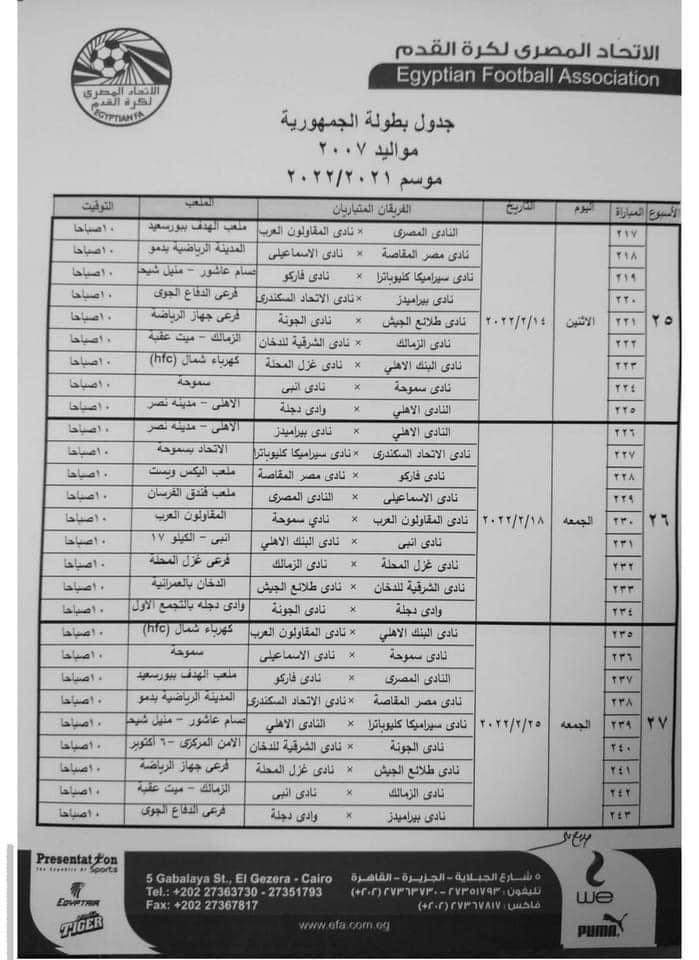 الاتحاد المصرى لكرة القدم
Egyptian Football Association
الاتحاد المصرى
لكرة القدم
EGYPTIAN FA
جدول بطولة الجمهورية
مواليد ٢٠٠٧
موسم ٢٠٢٢/٢٠٢١
الأسبوع المباراة اليوم التاريخ الفريقان المتباريان الملعب التوقيت
٢٥ الاثنين ٢٠٢٢/٢/١٤
٢١٧ النادى المصرى × نادى المقاولون العرب ملعب الهدف ببورسعيد ١٠صباحا
٢١٨ نادى مصر المقاصة × نادى الاسماعيلى المدينة الرياضية بدمو ١٠صباحا
٢١٩ نادى سيراميكا كليوباترا × نادى فاركو عصام عاشور - منيل شيحا ١٠صباحا
٢٢٠ نادى بيراميدز × نادى الاتحاد السكندرى فرعى الدفاع الجوى ١٠صباحا
٢٢١ نادى طلائع الجيش × نادى الجونة فرعى جهاز الرياضة ١٠صباحا
٢٢٢ نادى الزمالك × نادى الشرقية للدخان الزمالك - ميت عقبة ١٠صباحا
٢٢٣ نادى البنك الاهلي × نادى غزل المحلة كهرباء شمال (hfc) ١٠صباحا
٢٢٤ نادى سموحة × نادى انبى سموحة ١٠صباحا
٢٢٥ النادى الاهلي × وادى دجلة الاهلى - مدينه نصر ١٠صباحا
٢٦ الجمعه ٢٠٢٢/٢/١٨
٢٢٦ النادى الاهلي × نادى بيراميدز الاهلى - مدينه نصر ١٠صباحا
٢٢٧ نادى الاتحاد السكندرى × نادى سيراميكا كليوباترا الاتحاد بسموحة ١٠صباحا
٢٢٨ نادى فاركو × نادى مصر المقاصة ملعب اليكس ويست ١٠صباحا
٢٢٩ نادى الاسماعيلى × النادى المصرى ملعب فندق الفرسان ١٠صباحا
٢٣٠ نادى المقاولون العرب × نادي سموحة المقاولون العرب ١٠صباحا
٢٣١ نادى انبى × نادى البنك الاهلي انبى - الكيلو ١٧ ١٠صباحا
٢٣٢ نادى غزل المحلة × نادى الزمالك فرعى غزل المحلة ١٠صباحا
٢٣٣ نادى الشرقية للدخان × نادى طلائع الجيش الدخان بالعمرانية ١٠صباحا
٢٣٤ وادى دجلة × نادى الجونة وادى دجله بالتجمع الاول ١٠صباحا
٢٧ الجمعه ٢٠٢٢/٢/٢٥
٢٣٥ نادى البنك الاهلي × نادى المقاولون العرب كهرباء شمال (hfc) ١٠صباحا
٢٣٦ نادى سموحة × نادى الاسماعيلى سموحة ١٠صباحا
٢٣٧ النادى المصرى × نادى فاركو ملعب الهدف ببورسعيد ١٠صباحا
٢٣٨ نادى مصر المقاصة × نادى الاتحاد السكندرى المدينة الرياضية بدمو ١٠صباحا
٢٣٩ نادى سيراميكا كليوباترا × النادى الاهلي عصام عاشور - منيل شيحا ١٠صباحا
٢٤٠ نادى الجونة × نادى الشرقية للدخان الامن المركزى -٦ أكتوبر ١٠صباحا
٢٤١ نادى طلائع الجيش × نادى غزل المحلة فرعى جهاز الرياضة ١٠صباحا
٢٤٢ نادى الزمالك × نادى انبى الزمالك - ميت عقبة ١٠صباحا
٢٤٣ نادى بيراميدز × وادى دجلة فرعى الدفاع الجوى ١٠صباحا
Presentation
Sports
EGYPTAIR
TIGER
5 Gabalaya St., El Gezera - Cairo
Tel.: +202 27363730 - 27351793
Fax: +202 27367817
٥ شارع الجبلاية - الجزيرة - القاهرة
تليفون : ٢٧٣٥١٧٩٣ - ٢٧٣٦٣٧٣٠ (٢٠٢+)
فاكس : ٢٧٣٦٧٨١٧ (٢٠٢+)
www.efa.com.eg
we
PUMA